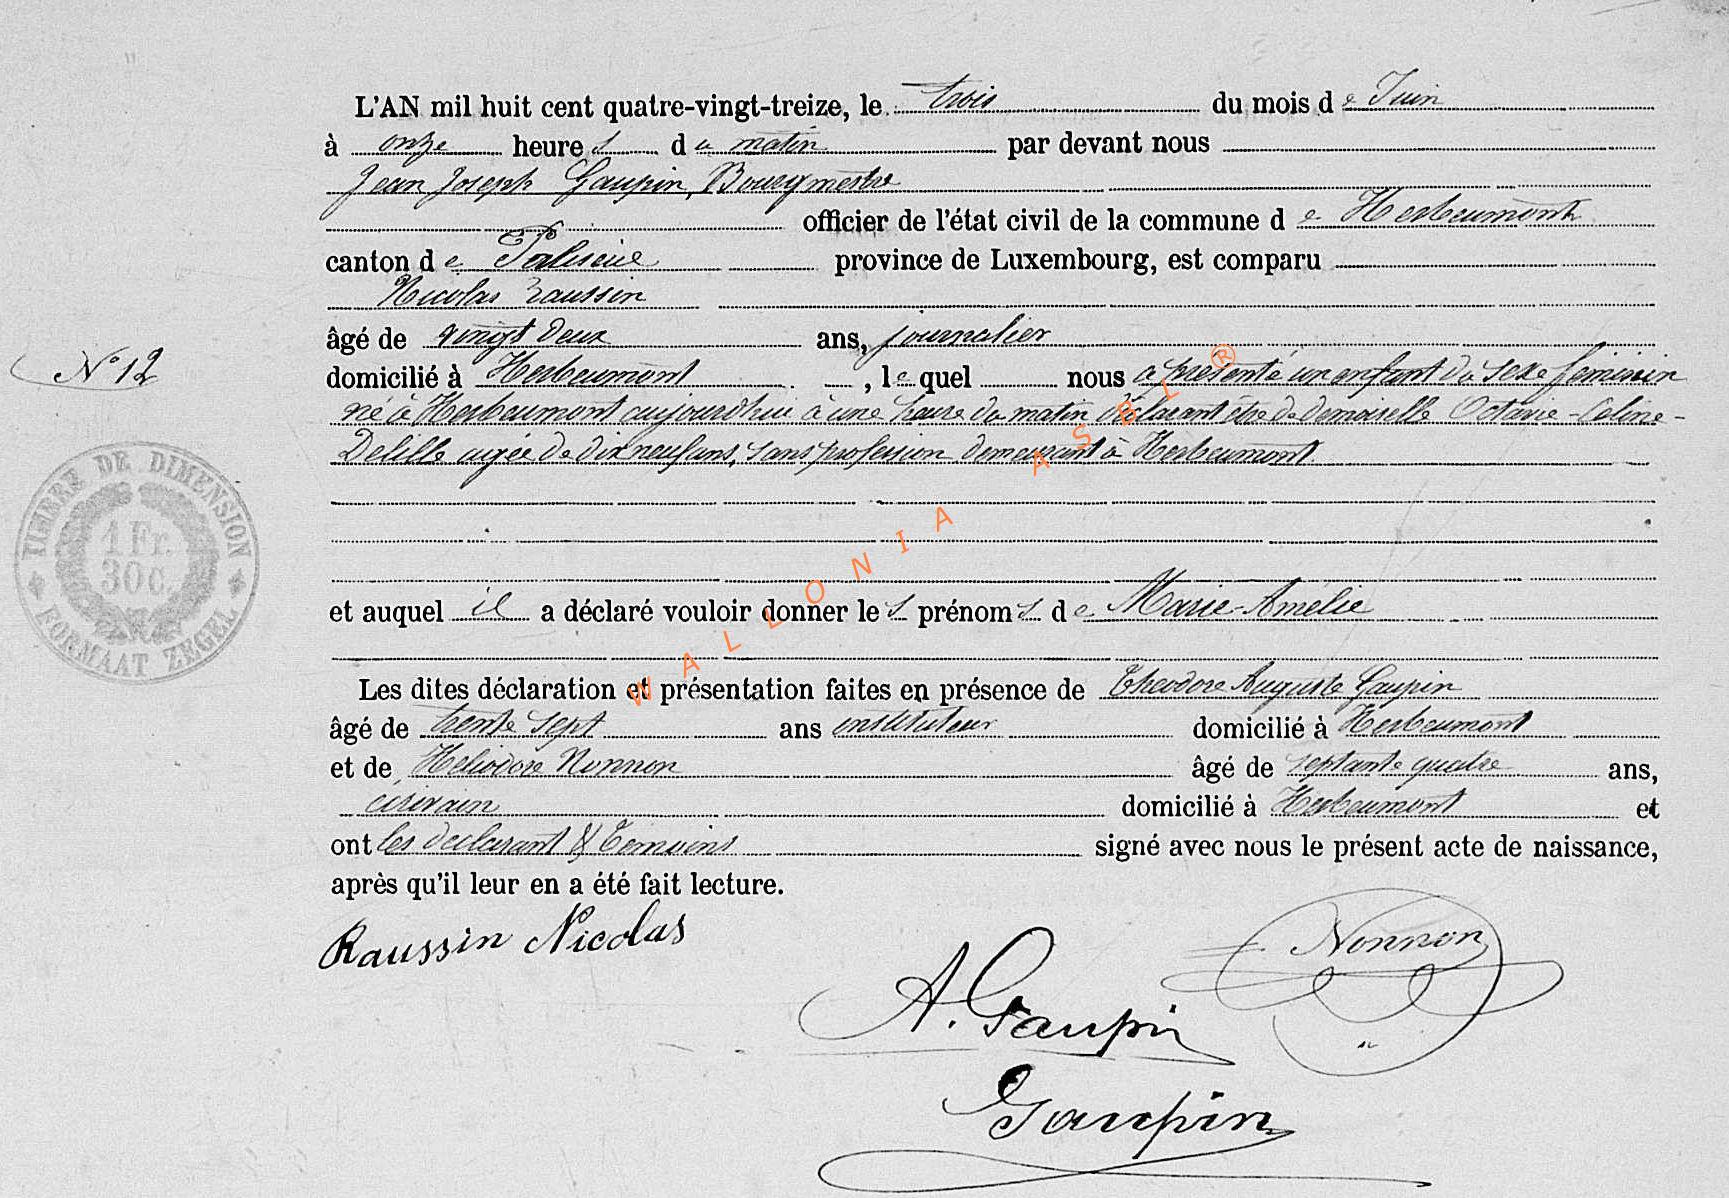 L'AN mil huit cent quatre-vingt-treize, le trois du mois de Juin
à onze heures du matin par devant nous
Jean Joseph Gaupin, Bourgmestre
officier de l'état civil de la commune de Herbeumont
canton de Paliseul province de Luxembourg, est comparu
Nicolas Raussin
âgé de vingt deux ans, journalier
N° 12
domicilié à Herbeumont, lequel nous a présenté un enfant du sexe féminin
né à Herbeumont aujourd'hui à une heure du matin déclarant être de demoiselle Octavie-Celine-
Delille agée de dix neuf ans, sans profession demeurant à Herbeumont
TIMBRE DE DIMENSION
1 Fr.
30 c.
FORMAAT ZEGEL
et auquel il a déclaré vouloir donner les prénoms de Marie-Amélie
WALLONIA ASBL ®
Les dites déclaration et présentation faites en présence de Théodore Auguste Gaupin
âgé de trente sept ans instituteur domicilié à Herbeumont
et de Héliodore Nonnon âgé de septante quatre ans,
écrivain domicilié à Herbeumont et
ont les déclarant & témoins signé avec nous le présent acte de naissance,
après qu'il leur en a été fait lecture.
Raussin Nicolas
Nonnon
A. Gaupin
Gaupin